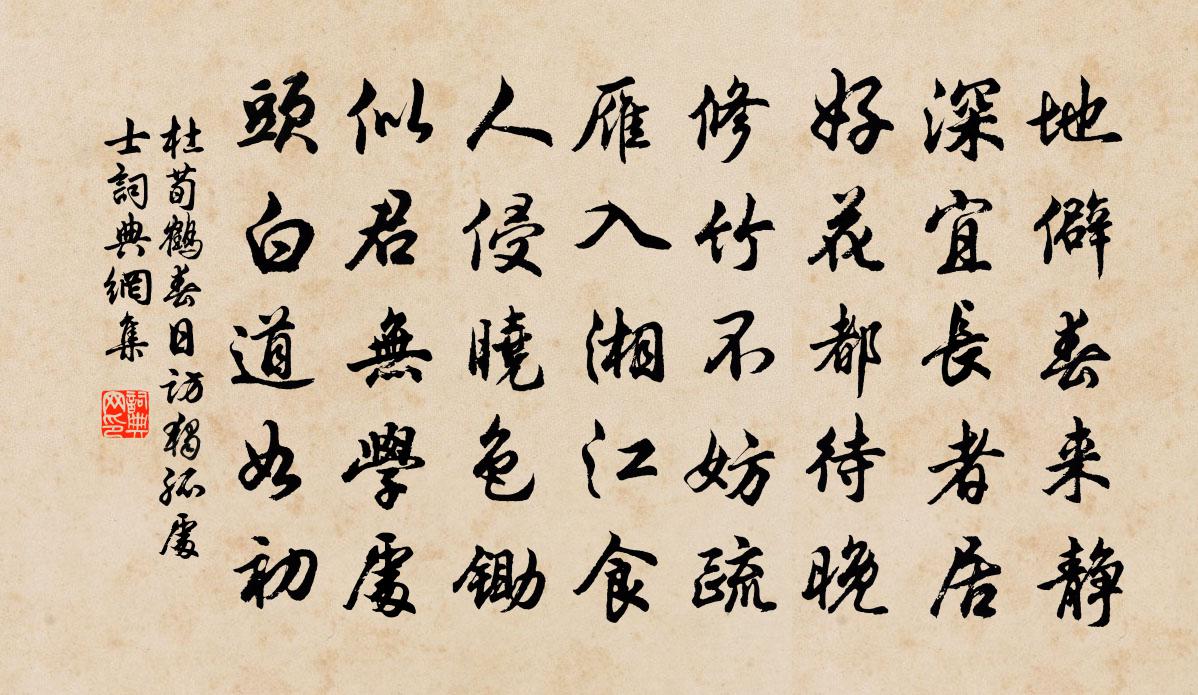 地僻春来静
深宜長者居
好花都待晚
修竹不妨疏
雁入湘江食
人侵曉色鋤
似君無學處
頭白道如初
杜荀鶴春日訪獨孤處
士詞典網集
詞典网印